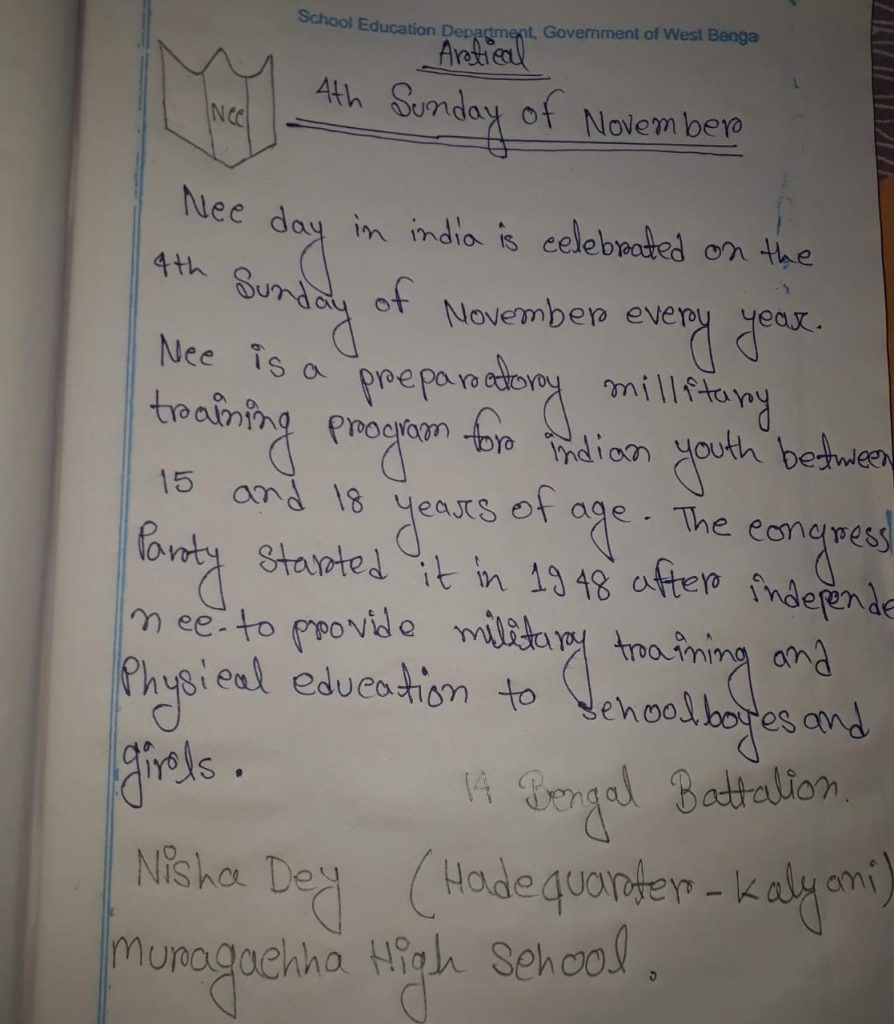 School Education Department, Government of West Benga
Artical
Ncc
4th Sunday of November
Ncc day in india is celebrated on the
4th Sunday of November every year.
Ncc is a preparatory millitary
training program for indian youth between
15 and 18 years of age. The congress
Party Started it in 1948 after independe
nce. to provide military training and
Physical education to schoolboyes and
girls.
14 Bengal Battalion.
Nisha Dey (Hadequarter - Kalyani)
Muragachha High School.